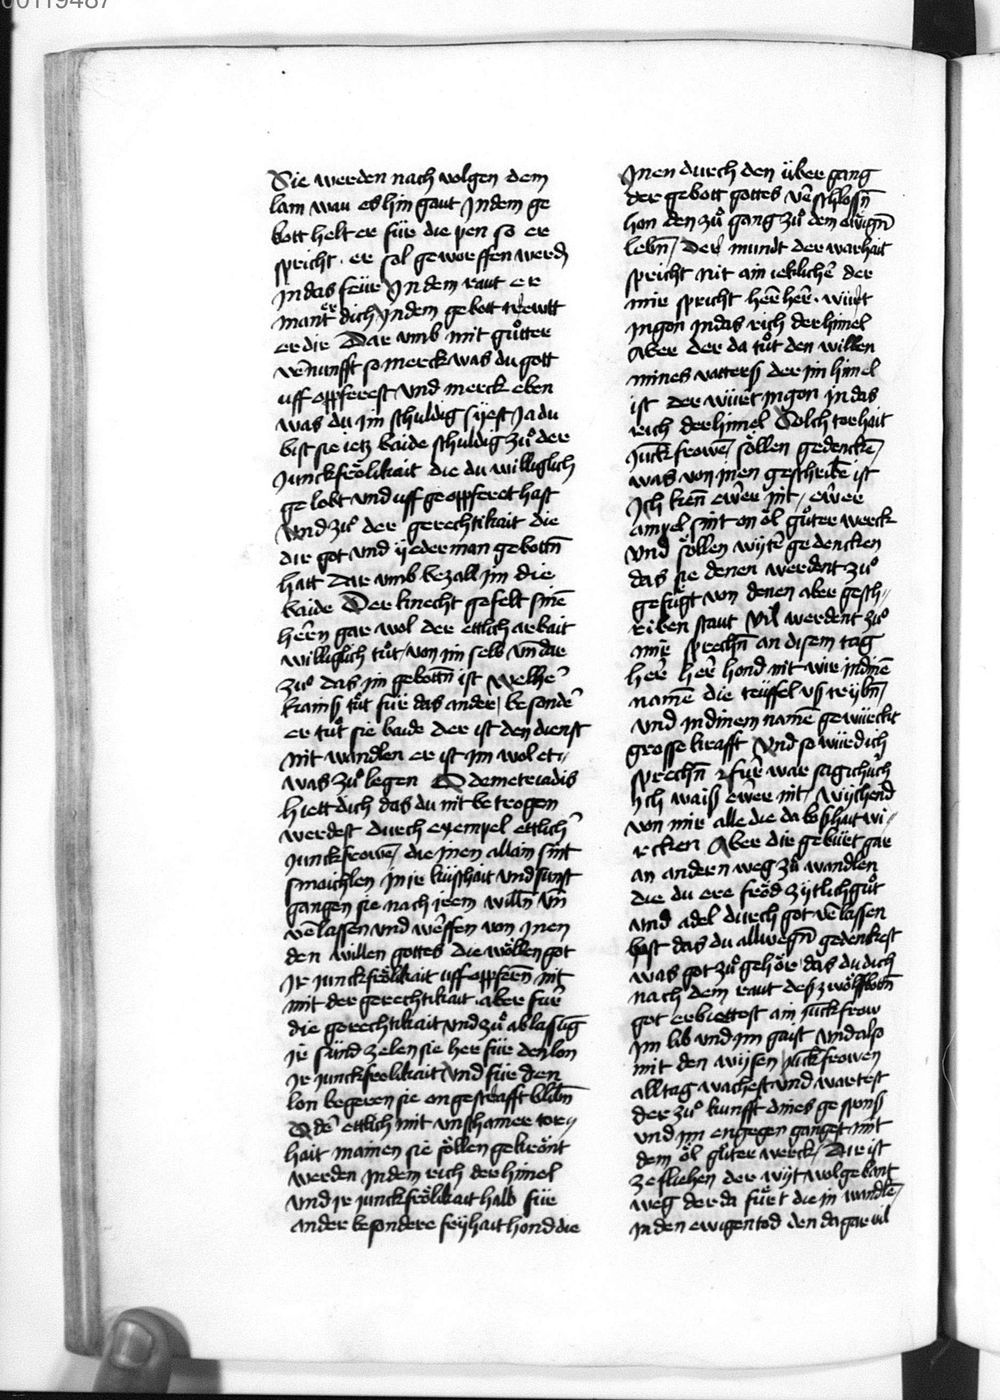 00119487
Sie werden nach volgen dem
lam wau es hin gaut Jn dem ge
bott helt er für die pen so er
spricht . er sol geworffen werdn
Jn das feür Jn dem raut er
manet er dich Jn dem gebott trewtt
er dir Dar vmb mit gůtter
vernunfft so merck was du gott
uff oppferest Vnd merck eben
was du im schuldig syest Ja du
bist sie ietz baide schuldig zů der
Junckfrölikait die du williglich
gelobt vnd uff geoppferet hast
Vnd zů der gerechtikait die
dir got vnd yederman gebottn
hatt Dar vmb bezall im die
baide Der knecht gefelt sinē
herrn gar wol der ettlich arbait
williglich tůt von im selb vn dar
zů das im gebottn ist Welhē
krams tůt für das ander besonder
er tůt sie baide der ist den dienst
nit wandlen er ist im wol et//
was zů legen O demetriadis
hiett dich das du nit betrogen
werdest durch exempel ettlichr
Junckfrowē / die inen allain sint
smaichlen in ir küschait vnd sunst
gangen sie nach irem willn vn̄
verlassen vnd werffen von Jnen
den willen gottes die wöllen got
Jr junckfrölikait uff oppfern nit
mit der gerechtikait . aber für
die gerechtikait vnd zů ablassūg
Jr sünd zelen sie her für den lon
Jr junckfrölikait Vnd für den
lon begeren sie on gestrafft blibn
Oder ettlich mit vnschamer tor//
hait mainen sie söllen gekrönt
werden Jn dem rich der himel
Vnd ir junckfrölikait halb für
ander besondere fryhait hond die
Jnen durch den übergang
der gebott gottes verschlossn
hon den zů gang zů dem ewign
lebn / Der mundt der warhait
spricht Nit ain ieklicher der
mir spricht herr herr . würt
ingon in das rich der himel
Aber der da tůt den willen
mines vatters der im himel
ist der würt ingon in das
rich der himel Solch torhait
Junckfrowē / söllen gedenckē /
was von inen geschribē ist
Jch kenn ewer nit / ewer
ampel sint on öl gůter werck
Vnd söllen wyter gedencken
das sie denen werdent zů
gefügt von denen aber gesch//
riben staut Vil werdent zů
mir sprechn an disem tag
herr herr hond nit wir in dinē
namē die teüffel vs trybn /
Vnd in dinem namē gewürckt
grosse krafft Vnd so würd ich
sprechn für war sag ich üch
ich waiss ewer nit / wychend
von mir alle die da boshait wi//
rcken Aber dir gebürt gar
an andern weg zů wandlen
die du ere fröd zytlich gůt
vnd adel durch got verlassen
hast das du allwegn gedenckest
was got zů gehör das du dich
nach dem raut des zwölffbottn
got erbiettest ain junckfrow
im lib vnd im gaist Vnd also
mit den wysen junckfrowen
all tag wachest vnd wartest
der zů kunfft dines gespons
vnd im engegen gangest mit
dem öl gůter werck / Dir ist
ze fliehen der wyt wolgebant
weg der da fürt die in wandlē
in den ewigen tod den da gar vil